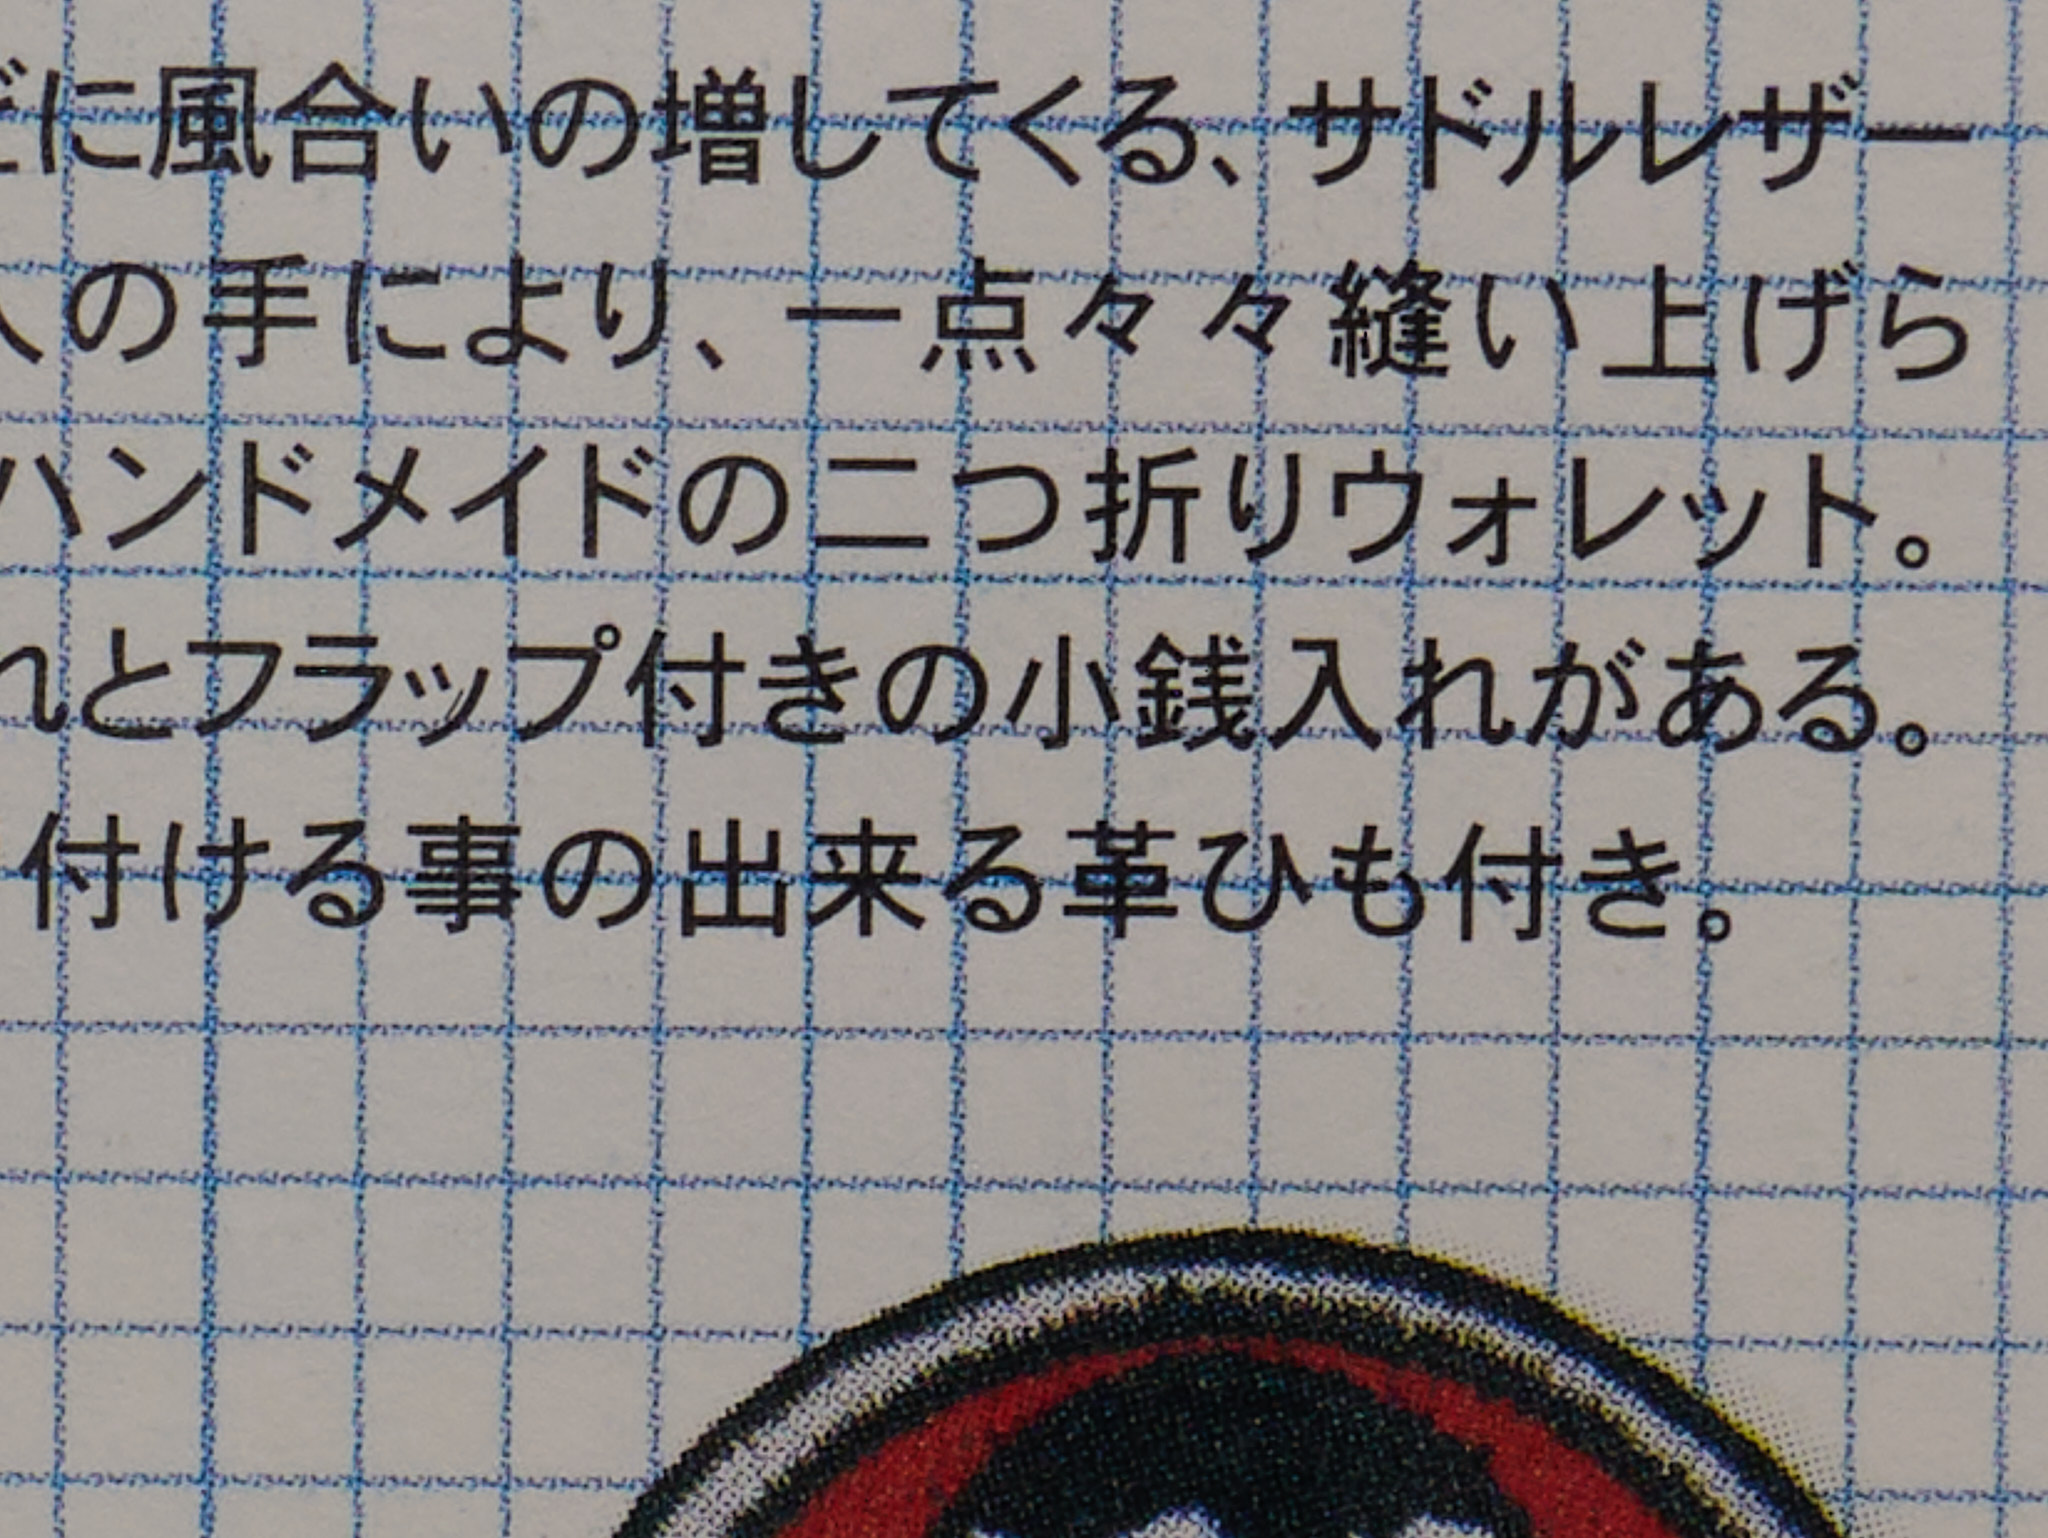 に風合いの増してくる、サドルレザー
の手により、一点々々縫い上げら
ハンドメイドの二つ折りウォレット。
れとフラップ付きの小銭入れがある。
付ける事の出来る革ひも付き。